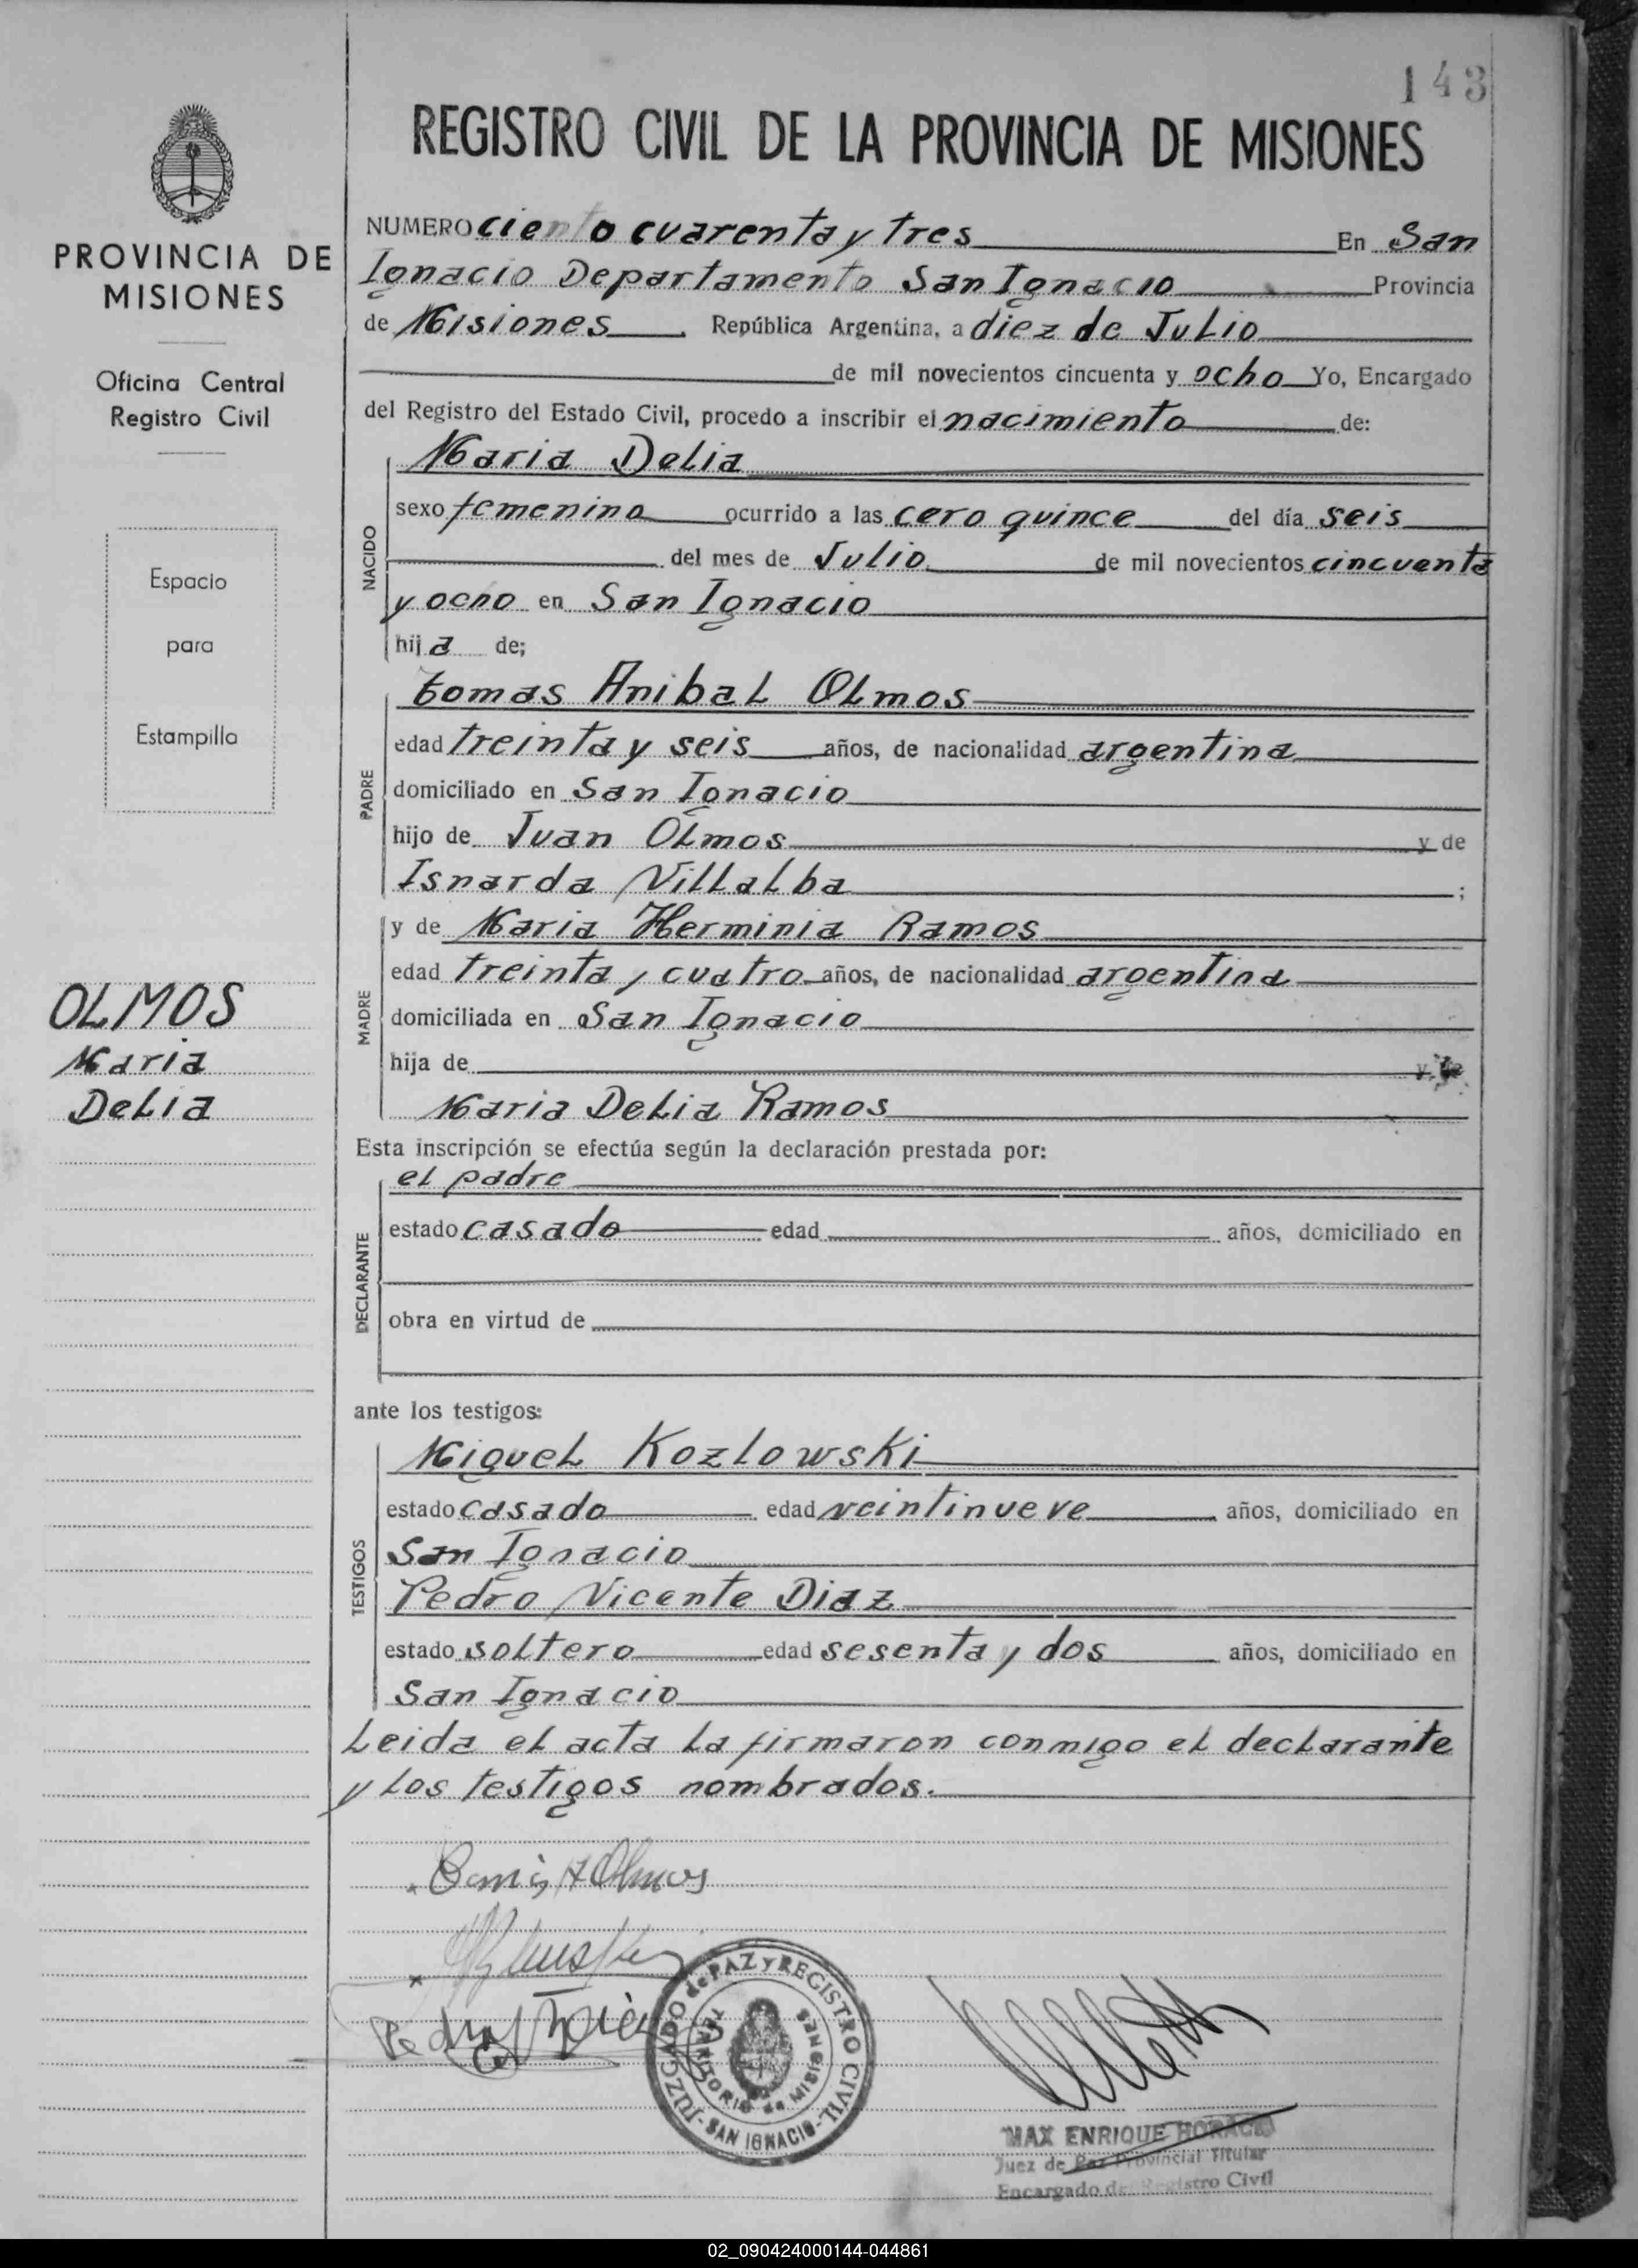 143
REGISTRO CIVIL DE LA PROVINCIA DE MISIONES
PROVINCIA DE
MISIONES
Oficina Central
Registro Civil
Espacio
para
Estampilla
OLMOS
Maria
Delia
NUMERO ciento cuarenta y tres En San
Ignacio Departamento San Ignacio Provincia
de Misiones República Argentina, a diez de Julio
de mil novecientos cincuenta y ocho Yo, Encargado
del Registro del Estado Civil, procedo a inscribir el nacimiento de:
NACIDO
Maria Delia
sexo femenino ocurrido a las cero quince del día seis
del mes de Julio de mil novecientos cincuenta
y ocho en San Ignacio
hija de;
PADRE
tomas Anibal Olmos
edad treinta y seis años, de nacionalidad argentina
domiciliado en San Ignacio
hijo de Juan Olmos y de
Isnarda Villalba ;
MADRE
y de Maria Herminia Ramos
edad treinta y cuatro años, de nacionalidad argentina
domiciliada en San Ignacio
hija de y de
Maria Delia Ramos
Esta inscripción se efectúa según la declaración prestada por:
DECLARANTE
el padre
estado casado edad años, domiciliado en
obra en virtud de
ante los testigos:
TESTIGOS
Miguel Kozlowski
estado casado edad veintinueve años, domiciliado en
San Ignacio
Pedro Vicente Diaz
estado soltero edad sesenta y dos años, domiciliado en
San Ignacio
Leida el acta la firmaron conmigo el declarante
y los testigos nombrados.
Olmos
Pedro
JUZGADO de PAZ y REGISTRO CIVIL
TERRITORIO de MISIONES
-SAN IGNACIO-
MAX ENRIQUE HORACIO
Juez de Paz Provincial Titular
Encargado del Registro Civil
02_090424000144-044861